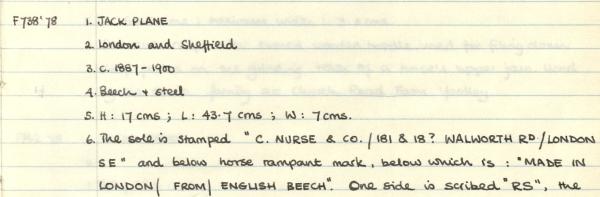 F738'78 1. JACK PLANE
2. London and Sheffield
3. c. 1887-1900
4. Beech + steel
5. H: 17cms ; L: 43.7 cms ; W: 7cms.
6. The sole is stamped "C. NURSE & CO./181 & 18? WALWORTH RD./LONDON
SE" and below horse rampant mark, below which is : "MADE IN
LONDON/ FROM/ ENGLISH BEECH". One side is scribed "RS", the